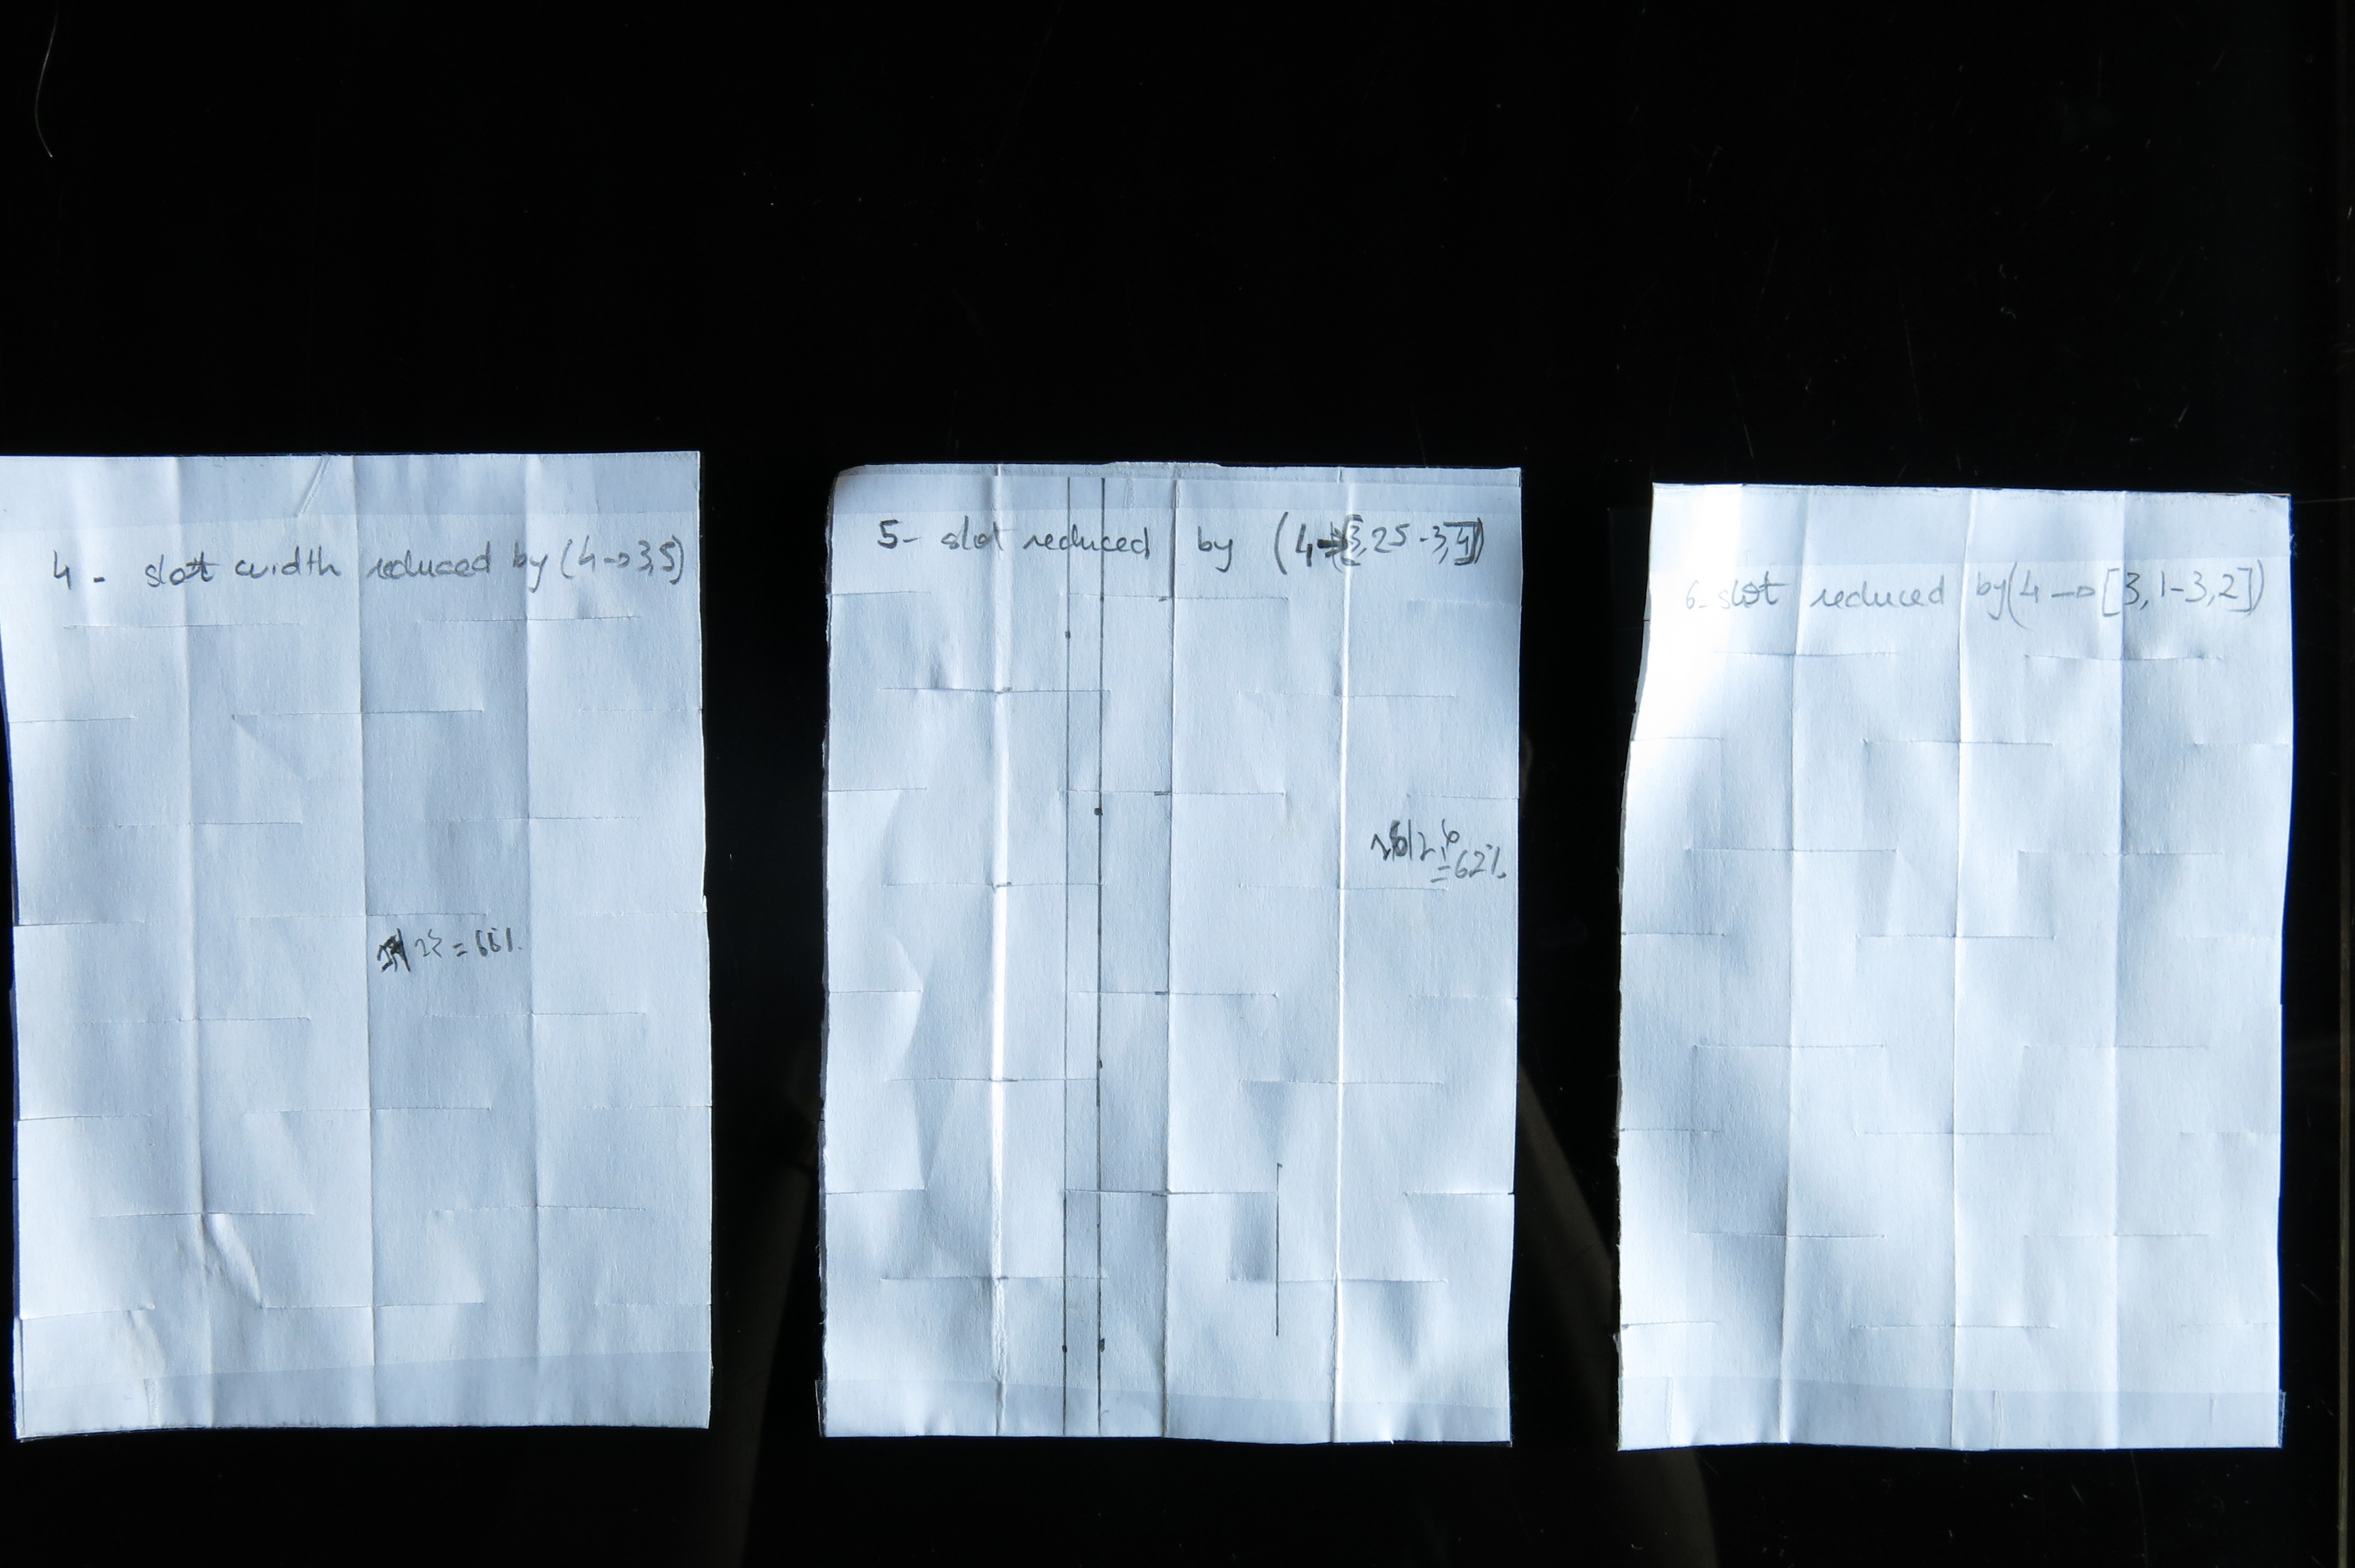 4 - slot width reduced by (4→3,5)
25 = 66%
5- slot reduced by (4→[3,25-3,4])
=62%
6- slot reduced by (4→[3,1-3,2])